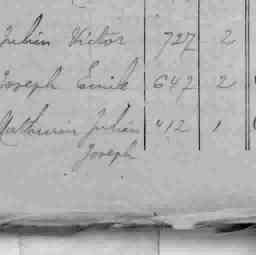 Julien Victor 727 2
Joseph Emile 642 2
Mathurin Julien 412 1
Joseph